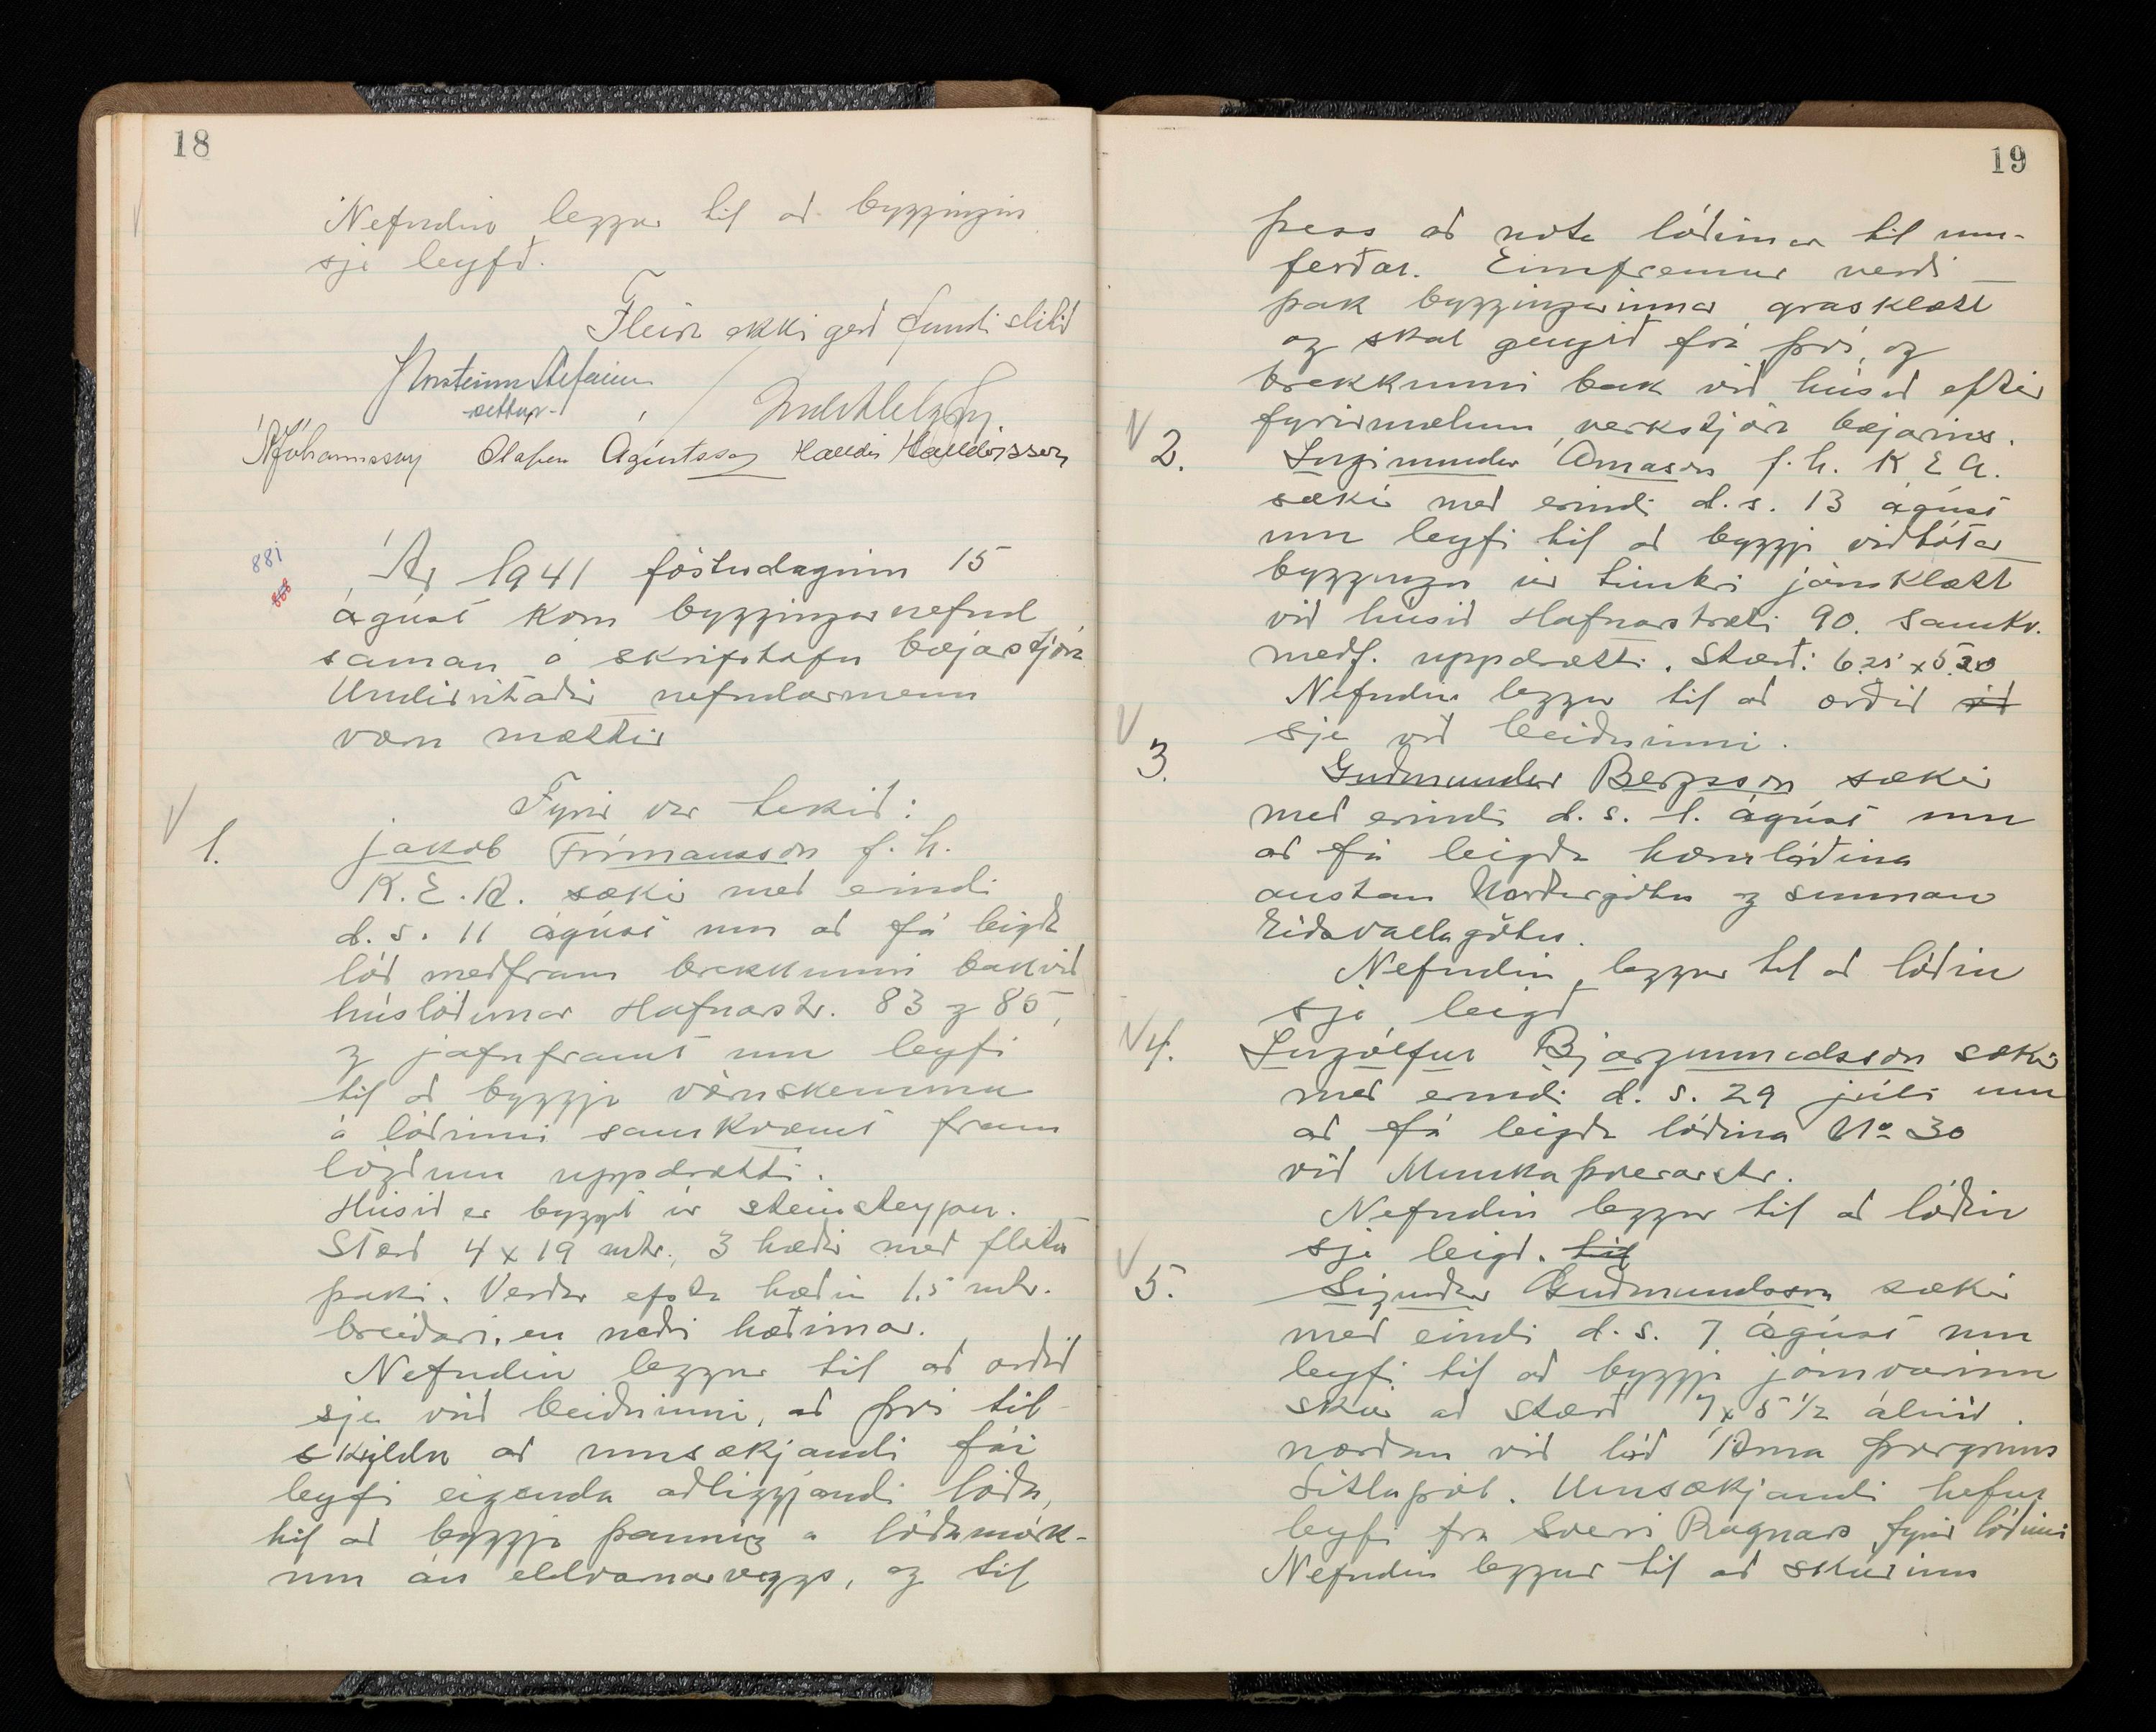 18
Nefndin leggur til að byggingin
sje leyfð.
Fleira ekki gert fundi slitið
Þorsteinn Stefánsson
settur
Jóhannsson Ólafur Ágústsson Halldór Halldórsson
881
Ár 1941 föstudaginn 15
ágúst kom byggingarnefnd
saman á skrifstofu bæjarstjóra
Undirritaðir nefndarmenn
voru mættir
Fyrir var tekið:
1.
Jakob Frímannsson f. h.
K. E. A. sækir með erindi
d. s. 11 ágúst um að fá leigða
lóð meðfram brekkunni bakvið
húslóðirnar Hafnarstr. 83 og 85,
og jafnframt um leyfi
til að byggja vöruskemmu
á lóðinni samkvæmt fram
lögðum uppdrætti.
Húsið er byggt úr steinsteypu.
Stærð 4 x 19 mtr., 3 hæðir með flötu
þaki. Verður efsta hæðin 1.5 mtr.
breiðari, en neðri hæðirnar.
Nefndin leggur til að orðið
sje við beiðninni, að því til-
skyldu að umsækjandi fái
leyfi eigenda aðliggjandi lóða,
til að byggja þannig á lóðamörk-
um án eldvarnarveggs, og til
19
þess að nota lóðirnar til um-
ferðar. Einnfremur verði
þak byggingarinnar grasklætt
og skal gengið frá því, og
brekkunni bak við húsið eftir
fyrirmælum verkstjóra bæjarins.
2.
Ingimundur Árnason f. h. K E A.
sækir með erindi d. s. 13 ágúst
um leyfi til að byggja viðbótar
byggingu úr timbri járnklætt
við húsið Hafnarstræti 90. samkv.
meðf. uppdrætti. Stærð: 6.25 x 5.20
Nefndin leggur til að orðið við
sje við beiðninni.
3.
Guðmundur Bergsson sækir
með erindi d. s. 1. ágúst um
að fá leigða hornlóðina
austan Norðurgötu og sunnan
Eiðsvallagötu.
Nefndin leggur til að lóðin
sje leigð
4.
Ingólfur Bjargmundsson sækir
með erindi d. s. 29 júlí um
að fá leigða lóðina No 30
við Munkaþverárstr.
Nefndin leggur til að lóðin
sje leigð. til
5.
Sigurður Guðmundsson sækir
með eindi d. s. 7 ágúst um
leyfi til að byggja járnvarinn
skúr að stærð 7 x 5 1/2 álnir.
norðan við lóð Árna Þorgríms
Litlahól. Umsækjandi hefur
leyfi frá Sverri Ragnars fyrir lóðinni
Nefndin leggur til að skúrinn